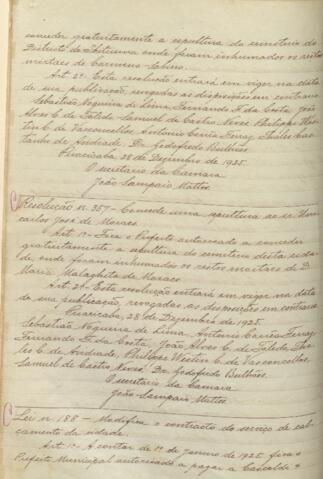 conceder gratuitamente a sepultura do cemiterio do
Districto de onde foram inhumados os restos
mortaes de Carmino
Art. 2º Esta resolução entrará em vigor na data
de sua publicação, revogadas as disposições em contrario
Sebastião Nogueira de Lima, Fernando F. da Costa, João
Alves C. de Toledo, Samuel de Castro Neves, Philippe Wes-
tin C. de Vasconcellos, Antonio Corrêa Ferraz, Thales Cas-
tanho de Andrade, Dr. Godofredo Bulhões.
Piracicaba, 28 de Dezembro de 1925.
O secretario da Camara
João Sampaio Mattos.
Resolução n. 357 - Concede uma sepultura ao sr.
carlos José de Moraes.
Art. 1º Fica o Prefeito autorizado a conceder
gratuitamente a sepultura do cemiterio desta cida-
de, onde foram inhumados os restos mortaes de D.
Maria de Moraes.
Art. 2º Esta resolução entrará em vigor na data
de sua publicação, revogadas as disposições em contrario
Piracicaba, 28 de Dezembro de 1925.
Sebastião Nogueira de Lima, Antonio Corrêa Ferraz,
Fernando F. da Costa, João Alves C. de Toledo, Tha-
les C. de Andrade, Philippe Westin C. de Vasconcellos,
Samuel de Castro Neves, Dr. Godofredo Bulhões.
O secretario da Camara
João Sampaio Mattos.
Lei n. 188 - Modifica o contracto do serviço de cal-
çamento da cidade.
Art. 1º A contar de 1º de janeiro de 1925 fica o
Prefeito Municipal autorizado a pagar a